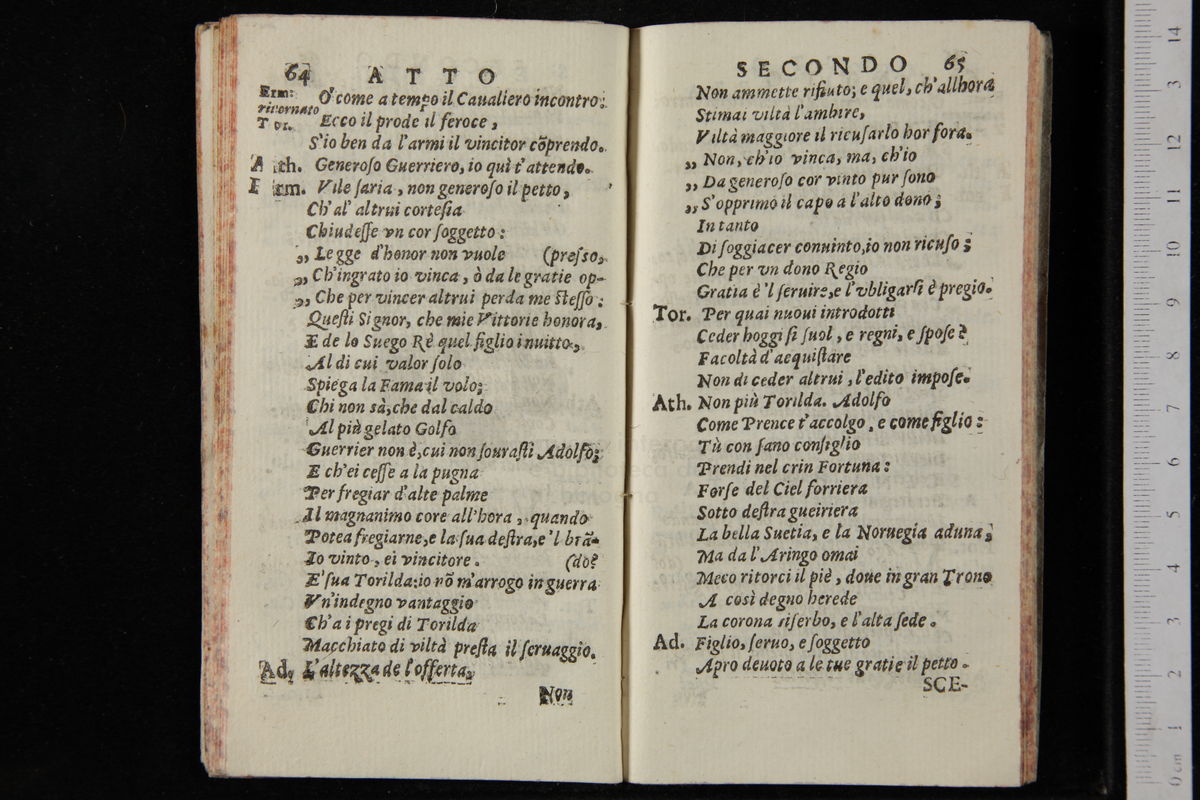 64 ATTO
Erm: O' come a tempo il Caualiero incontro:
ritornato
Tor. Ecco il prode il feroce,
S'io ben da l'armi il vincitor cõprendo.
Ath. Generoſo Guerriero, io quì t'attendo.
Erm. Vile ſaria, non generoſo il petto,
Ch'al' altrui corteſia
Chiudeſſe vn cor ſoggetto:
„ Legge d'honor non vuole (preſso,
„ Ch'ingrato io vinca, ò da le gratie op-
„ Che per vincer altrui perda me ſteſſo:
Queſti Signor, che mie Vittorie honora,
E de lo Suego Rè quel figlio inuitto,
Al di cui valor ſolo
Spiega la Fama il volo;
Chi non sà, che dal caldo
Al più gelato Golfo
Guerrier non è, cui non ſouraſti Adolfo;
E ch'ei ceſſe a la pugna
Per fregiar d'alte palme
Il magnanimo core all'hora, quando
Potea fregiarne, e la ſua deſtra, e 'l brã-
Io vinto, ei vincitore. (do?
E' ſua Torilda: io nõ m'arrogo in guerra
Vn'indegno vantaggio
Ch'a i pregi di Torilda
Macchiato di viltà preſta il ſeruaggio.
Ad. L'altezza de l'offerta,
Non
SECONDO 65
Non ammette rifiuto; e quel, ch'allhora
Stimai viltà l'ambire,
Viltà maggiore il ricuſarlo hor fora.
„ Non, ch'io vinca, ma, ch'io
„ Da generoſo cor vinto pur ſono
„ S'opprimo il capo a l'alto dono;
In tanto
Di ſoggiacer conuinto, io non ricuſo;
Che per vn dono Regio
Gratia è 'l ſeruire, e l'vbligarſi è pregio.
Tor. Per quai nuoui introdotti
Ceder hoggi ſi ſuol, e regni, e ſpoſe?
Facoltà d'acquiſtare
Non di ceder altrui, l'edito impoſe.
Ath. Non più Torilda. Adolfo
Come Prence t'accolgo, e come figlio:
Tù con ſano conſiglio
Prendi nel crin Fortuna:
Forſe del Ciel forriera
Sotto deſtra gueiriera
La bella Suetia, e la Noruegia aduna;
Ma da l'Aringo omai
Meco ritorci il piè, doue in gran Trono
A così degno herede
La corona riſerbo, e l'alta ſede.
Ad. Figlio, ſeruo, e ſoggetto
Apro deuoto a le tue gratie il petto.
SCE-
0 cm 1 2 3 4 5 6 7 8 9 10 11 12 13 14